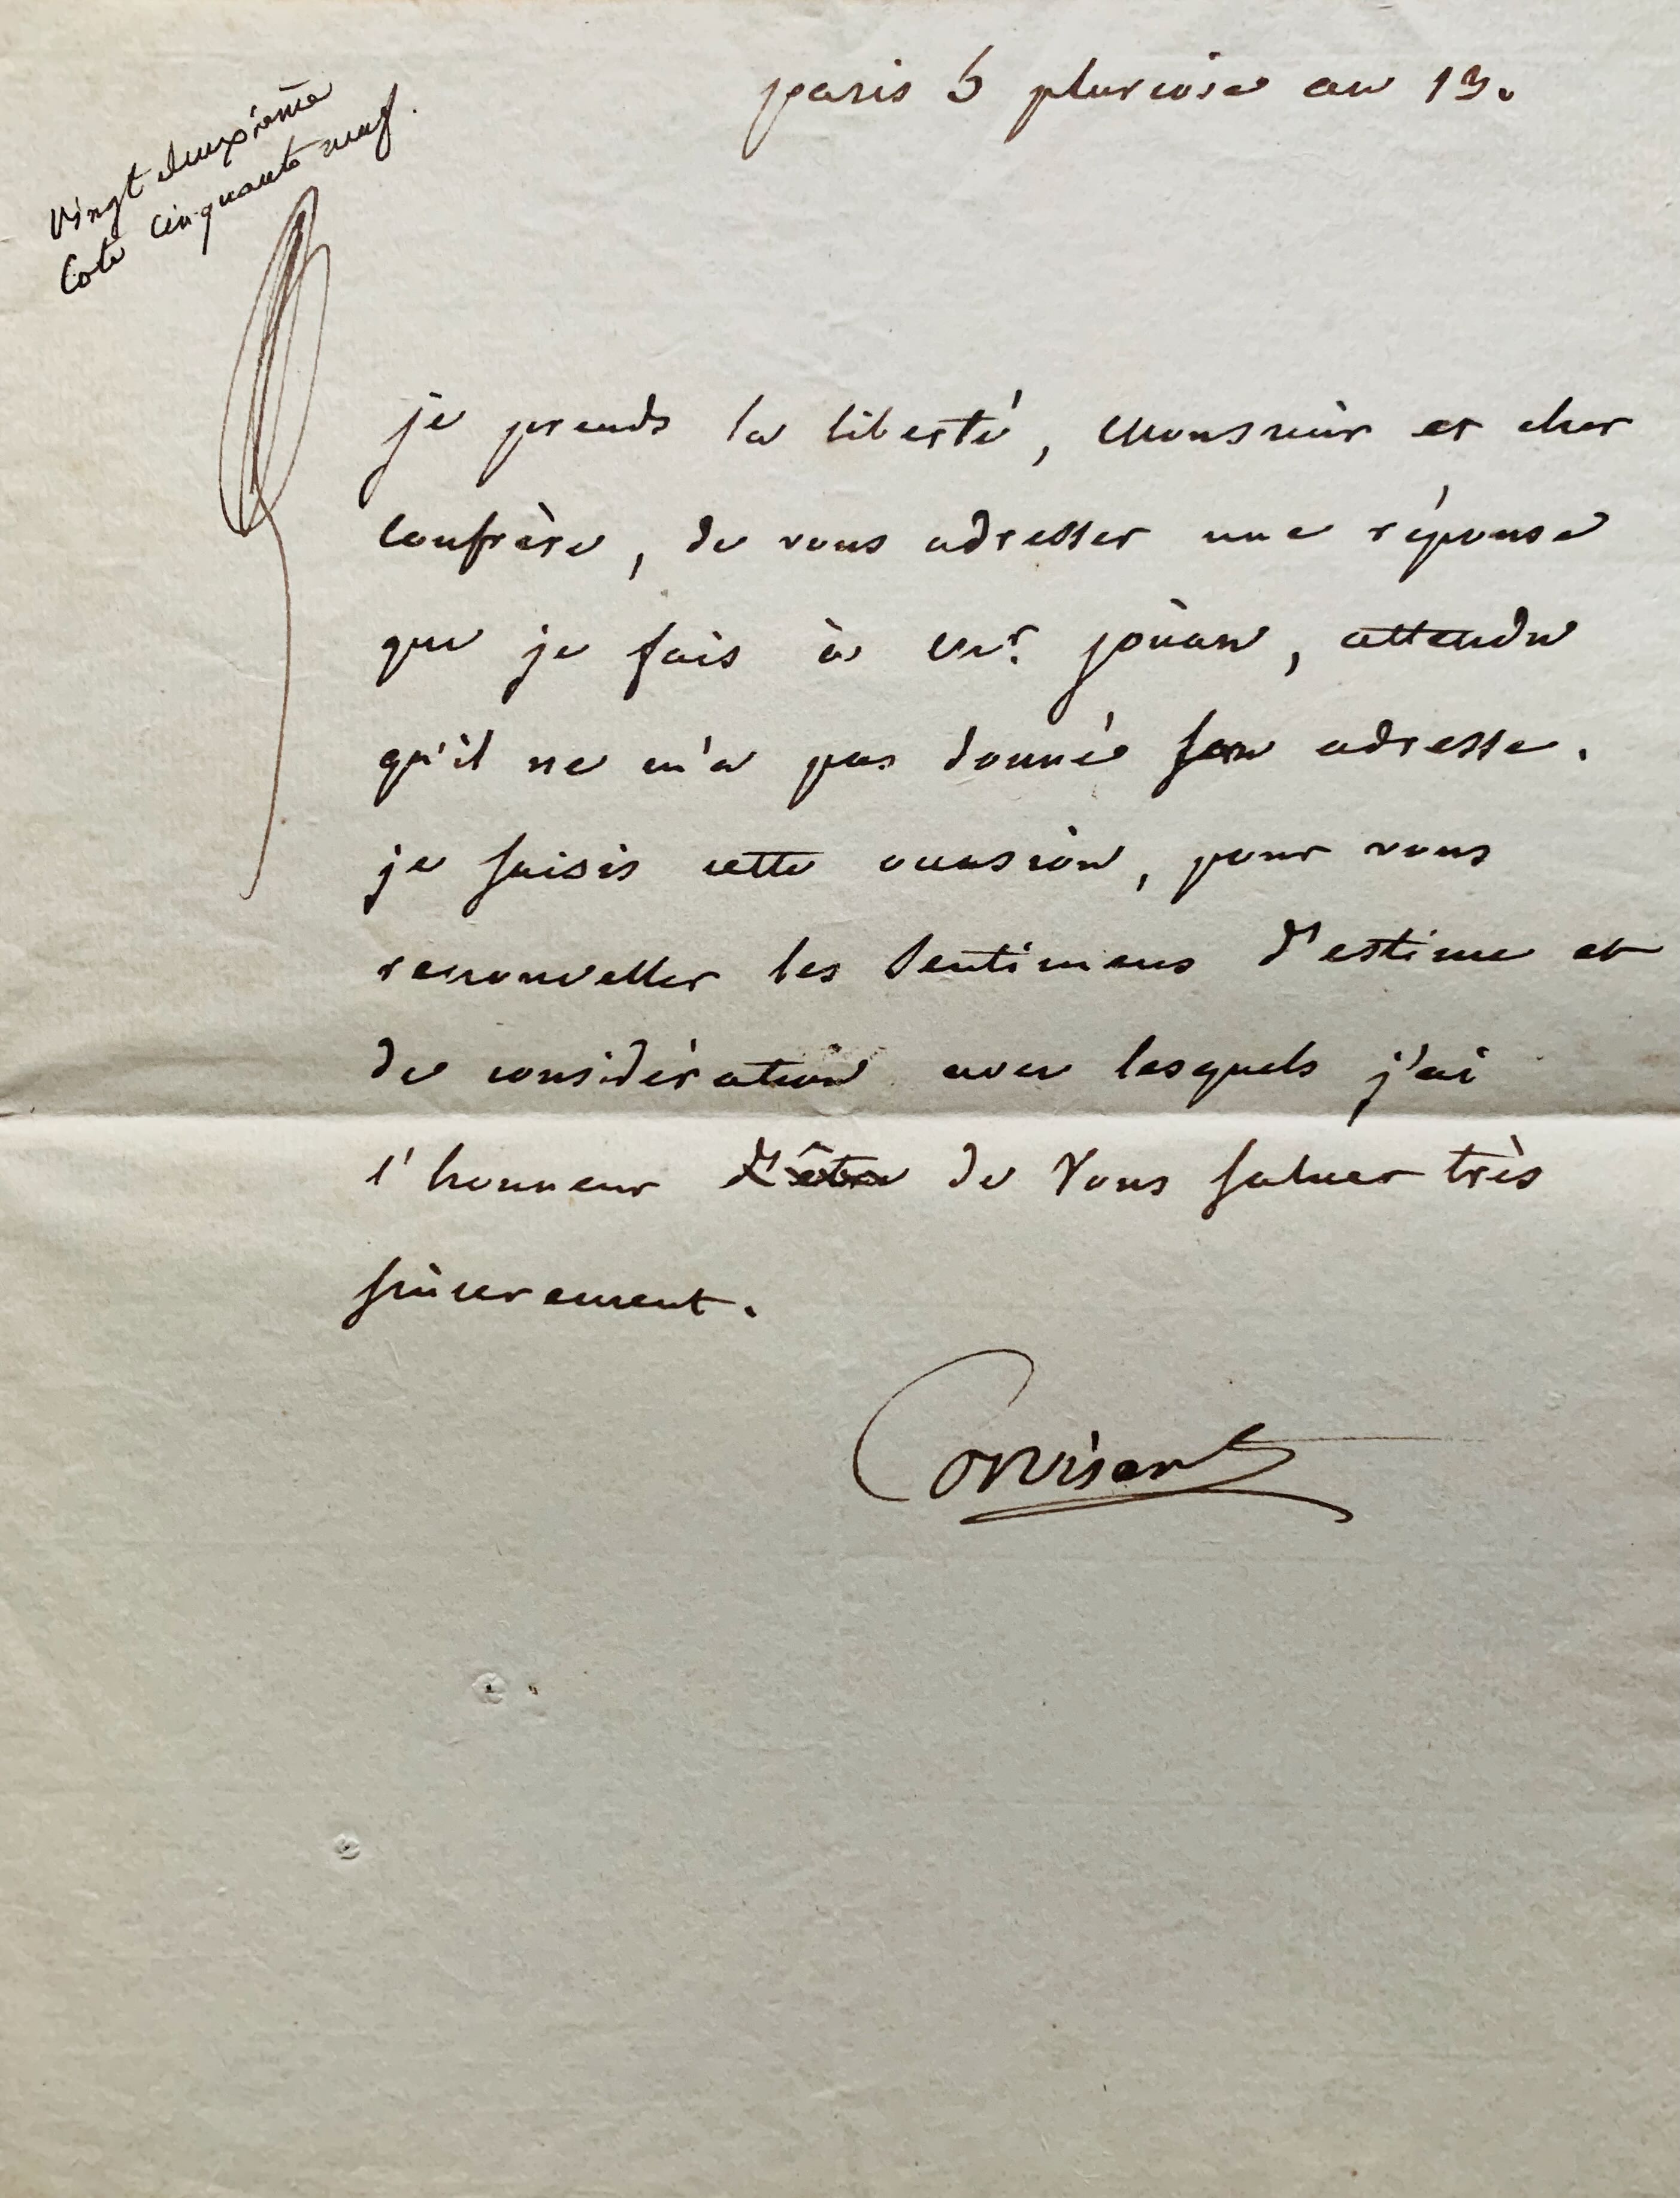 paris 5 pluviose an 13.
Vingt deuxième
Cote cinquante neuf.
je prends la liberté, Monsieur et cher
confrère, de vous adresser une réponse
que je fais à Mr. jouan, attendu
qu'il ne m'a pas donné son adresse.
je saisis cette occasion, pour vous
renouveller les sentimens d'estime et
de considération avec lesquels j'ai
l'honneur d'être de Vous saluer très
sincerement.
Corvisart